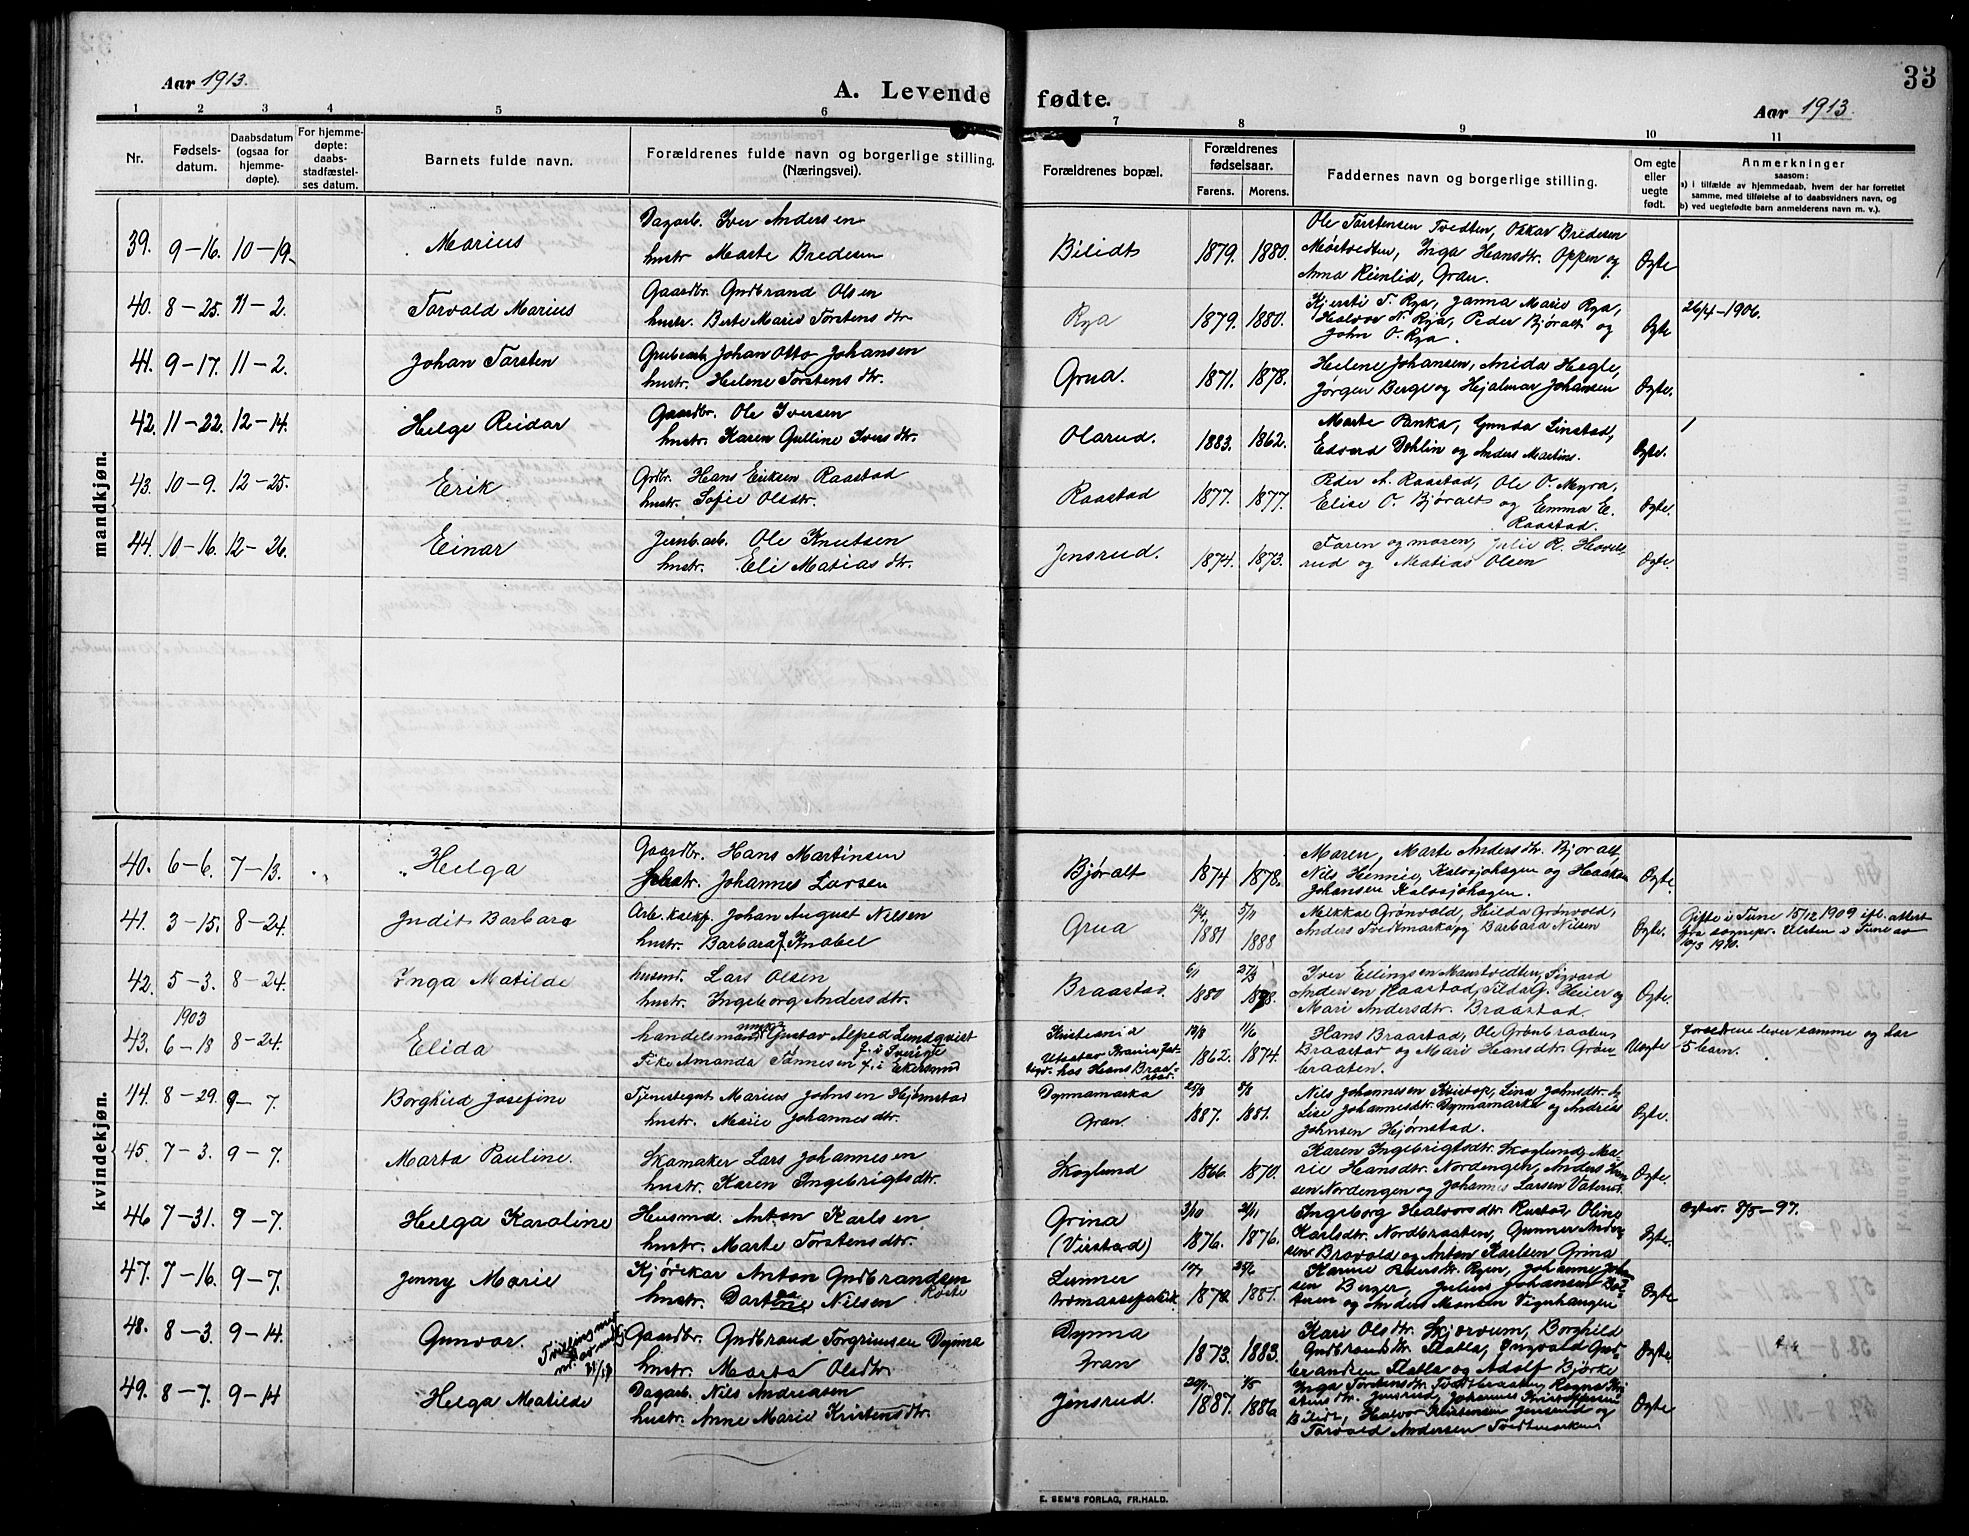 Aar 1913.
A. Levende fødte.
Aar 1913.
33
1 2 3 4 5 6 7 8 9 10 11
Nr.
Fødsels-
datum.
Daabsdatum
(ogsaa for
hjemme-
døpte).
For hjemme-
døpte:
daabs-
stadfæstel-
ses datum.
Barnets fulde navn.
Forældrenes fulde navn og borgerlige stilling.
(Næringsvei).
Forældrenes bopæl.
Forældrenes
fødselsaar.
Farens. Morens.
Faddernes navn og borgerlige stilling.
Om egte
eller
uegte
født.
Anmerkninger
saasom:
a) i tilfælde av hjemmedaab, hvem der har forrettet
samme, med tilføielse af to daabsvidners navn, og
b) ved uegtefødte barn anmelderens navn m. v.).
mandkjøn.
39. 9–16. 10–19. Marius
Dagarb. Iver Andersen
hustr. Marte Bredesen
Bilidt 1879. 1880.
Ole Torstensen Tvedten, Oskar Bredesen
Møstvedten, Inga Hansdtr. Oppen og
Anna Reinlid, Gran.
Egte
40. 8–25. 11–2. Torvald Marius
Gaardbr. Gudbrand Olsen
hustr. Berte Marie Torstensdtr
Rya 1879. 1880.
Kjersti T. Rya, Janna Marie Rya,
Halvor N. Rya, Peder Bjøralt og
John O. Rya.
Egte
26/4–1906.
41. 9–17. 11–2. Johan Torsten
Grubearb. Johan Otto Johansen
hustr. Helene Torstensdtr.
Grua. 1871. 1878.
Helene Johansen, Anida Hegle,
Jørgen Berge og Hjalmar Johansen
Egte.
42. 11–22. 12–14. Helge Reidar
Gaardbr. Ole Iversen
hustr. Karen Gulline Iversdtr.
Olarud. 1883. 1862.
Marte Panka, Gunda Linstad,
Edvard Dehlin og Anders Martins.
Egte.
43. 10–9. 12–25. Erik
Grdbr. Hans Eriksen Raastad
hustr. Sofie Olsdtr.
Raastad 1877. 1877.
Peder A. Raastad, Ole O. Myra,
Elise O. Bjøralt og Emma E.
Raastad.
Egte.
44. 10–16. 12–26. Einar
Jernb.arb. Ole Knutsen
hustr. Eli Matiasdtr.
Jensrud. 1874. 1873.
Faren og moren, Julie R. Hovels-
rud og Matias Olsen
Egte.
kvindekjøn.
40. 6–6. 7–13. Helga
Gaardbr. Hans Martinsen
hustr. Johannes Larsen
Bjøralt 1874 1878.
Maren, Marte Andersdtr. Bjøralt
Nils Hennie, Kalvsjøhagen og Haakon
Johansen Kalvsjøhagen.
Egte.
41. 3–15. 8–24. Judit Barbara
Arb. Johan August Nilsen
hustr. Barbara J. Knabel
Grua 1881 5/11 1888
Grønvold, Hilda Grønvold,
Anders Tvedtmark og Barbara Nilsen
Egte.
Gifte i Tune 15/12 1909 ifl. attest
fra sognepr. Ulsten i Tune av
10/3 1910.
42. 5–3. 8–24. Inga Matilde
husmd. Lars Olsen
hustr. Ingeborg Andersdtr.
Braastad 6/11 1880 27/3
Iver Ellingsen Maustvedten, Sigvard
Andersen Raastad, Tilda G. Heier og
Mari Andersdtr. Braastad.
Egte.
43. 1903 6–18 8–24. Elida
handelsmand Gustav Alfred Lundqvist f. i Sverige
Pike Amanda Tønnesen f. i Ekersund
Kristiania
hos Hans Braa-
stad.
19/8 1862. 11/6 1874.
Hans Braastad, Ole Grønbraaten,
Braastad og Mari Hansdtr. Grøn-
braaten.
Uegte
Forældrene lever samme og har
5 barn.
44. 8–29. 9–7. Borghild Josefine
Tjenestegut Marius Johnsen Hjørnstad
hustr. Marie Johannesdtr.
Dynnamarka
Gran.
25/9 1887. 5/8 1881.
Nils Johannesen, Lina Johnsdtr.
Lise Johannesdtr. Dynnamarka og Andreas
Johnsen Hjørnstad.
Egte.
45. 7–3. 9–7. Marta Pauline.
Skomaker Lars Johannesen
hustr. Karen Ingebrigtsdtr.
Skoglund 1866. 1870.
Karen Ingebrigtsdtr. Skoglund, Ma-
rie Hansdtr. Nordengen, Anders Han-
sen Nordengen og Johannes Larsen Vaterud.
Egte.
46 7–31. 9–7. Helga Karoline
Husmd. Anton Karlsen
hustr. Marte Torstensdtr.
Grina
(Virstad)
3/10 1876. 21/11 1876.
Ingeborg Halvorsdtr. Rustad, Oline
Karlsdtr. Nordbraaten, Gunner Ander-
sen Bravold og Anton Karlsen Grina
Egte.
5/5–97.
47. 7–16. 9–7. Jenny Marie
Kjørekar Anton Gudbrandsen Roste
hustr. Nilsen
Lunner
tremassefabrik
1881.
Karine Pedersdtr. Ryen, Johanne Johan-
sen Berger, Julius Johansen
og Anders Monsen Vignhaugen
Egte
48. 8–3. 9–14. Gunvor.
Tvilling med
31/58
Gaardbr. Gudbrand Torgrimsen Dynna
hustr. Marta Olsdtr.
Dynna
Gran
1873. 1883.
Kari Olsdtr. Skjervum, Borghild
Gudbrandsdtr. Flatla, Ingvald Gud-
brandsen Flatla og Adolf Bjørke
Egte
49. 8–7. 9–14 Helga Matilde
Dagarb. Nils Andreasen
hustr. Anne Marie Kristensdtr.
Jensrud. 1887. 1/5 1886
Inga Torstensdtr. Tvedtbraaten, Ragna Kri-
stensdtr. Jensrud, Johannes Kristoffersen
Bilidt, Halvor Kristensen Jensrud og
Torvald Andersen Tvedtmarken.
Egte
E. SEM'S FORLAG, FR.HALD.